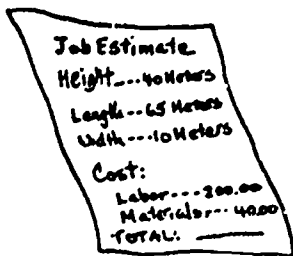 Job Estimate
Height---40 Meters
Length---65 Meters
Width---10 Meters
Cost:
Labor---800.00
Materials---40.00
TOTAL: